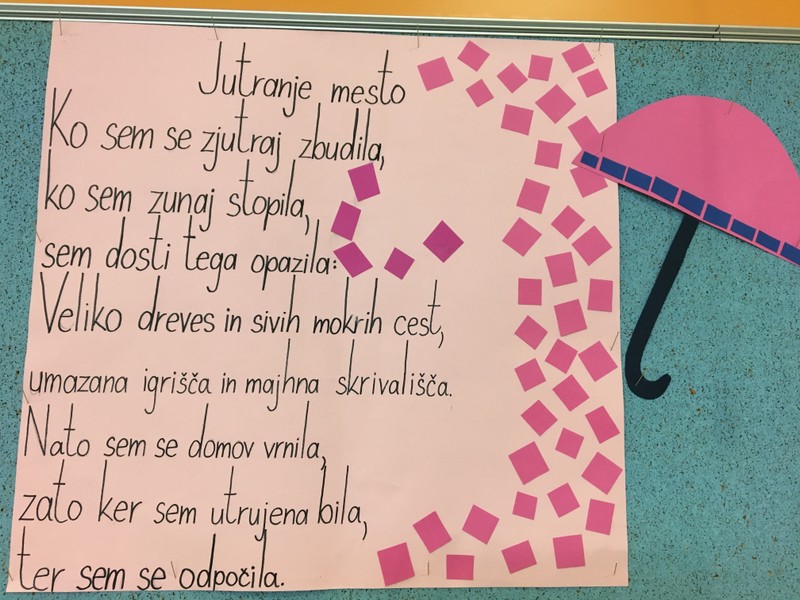 Jutranje mesto
Ko sem se zjutraj zbudila,
ko sem zunaj stopila,
sem dosti tega opazila:
Veliko dreves in sivih mokrih cest,
umazana igrišča in majhna skrivališča.
Nato sem se domov vrnila,
zato ker sem utrujena bila,
ter sem se odpočila.